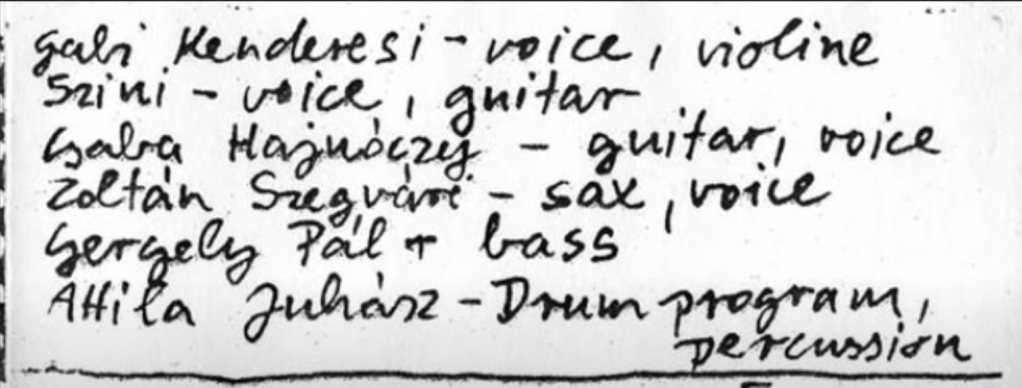 Gabi Kenderesi - voice, violine
Szini - voice, guitar
Csaba Hajnóczy - guitar, voice
Zoltán Szegvári - sax, voice
Gergely Pál + bass
Attila Juhász - Drum program,
percussion